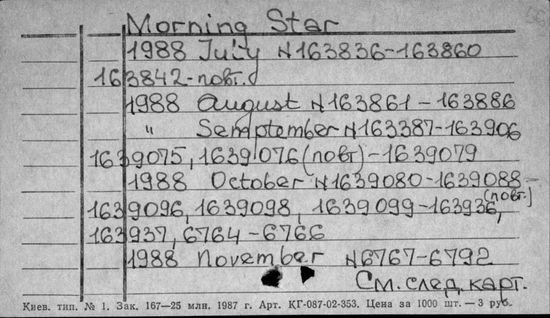 Morning Star
1988 July N163836-163860
163842-повт.
1988 August N163861-163886
" Semptember N163387-163906
1639075, 1639076 (повт)-1639079
1988 October N1639080-1639088-
(повт.)
1639096, 1639098, 1639099-163936,
163937, 6764-6766
1988 November N6767-6792
См. след. карт.
Киев. тип. № 1. Зак. 167—25 млн. 1987 г. Арт. КГ-087-02-353. Цена за 1000 шт.— 3 руб.